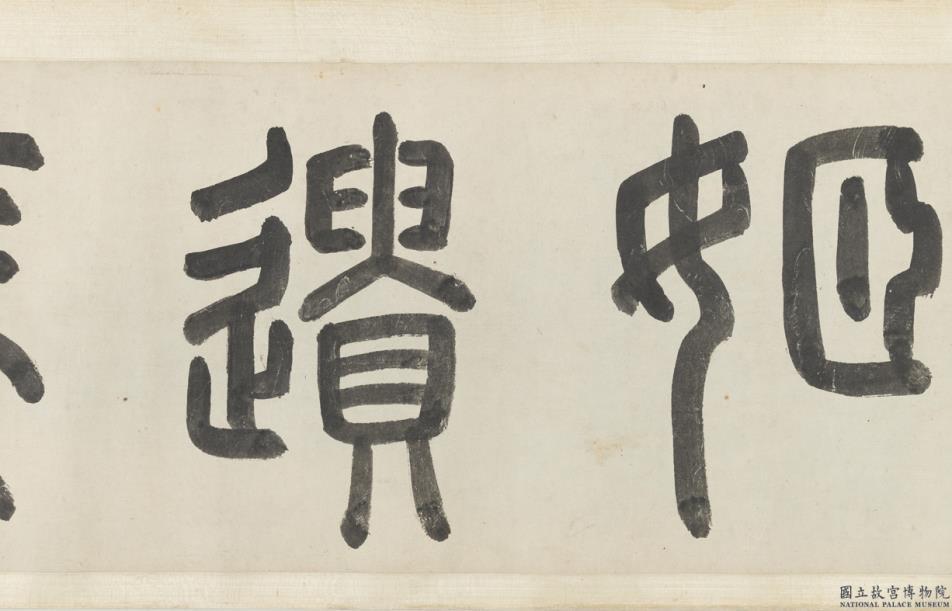 姬遺
國立故宮博物院
NATIONAL PALACE MUSEUM